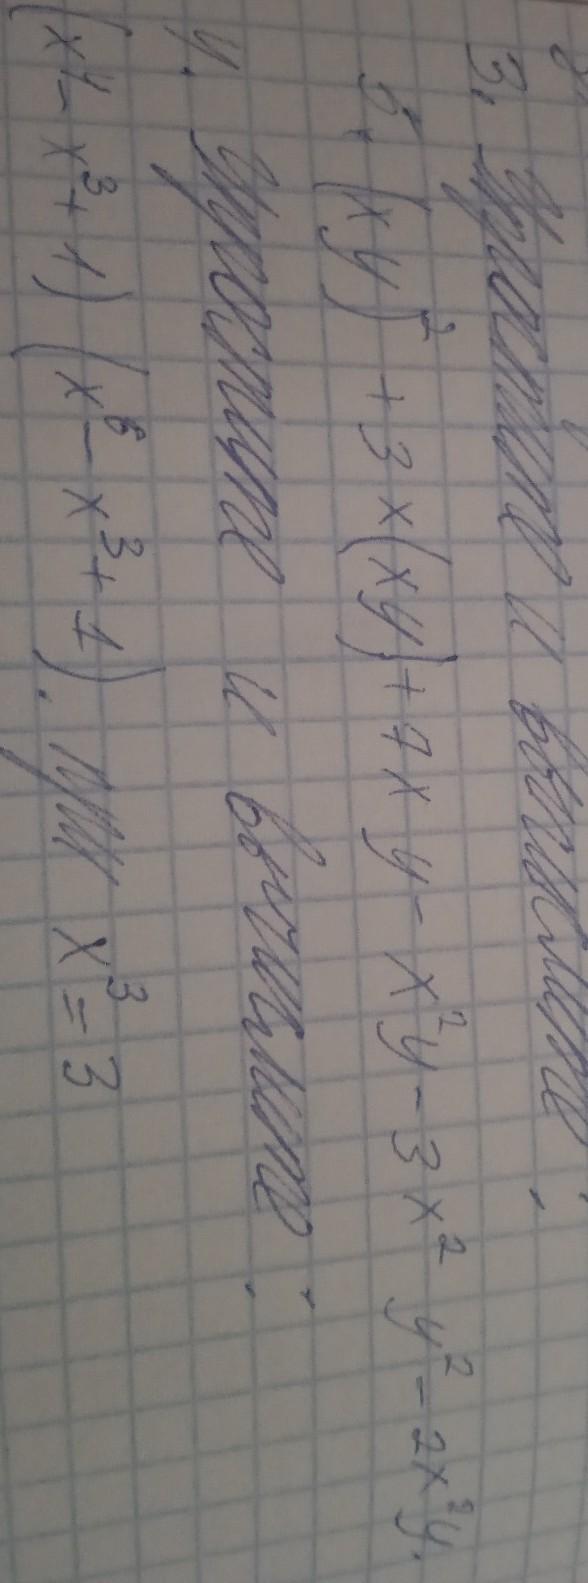 3. Упростите и вычислите:
5 · (xy)² + 3x(xy) + 7xy - x²y - 3x² y² - 2x²y.
4. Упростите и вычислите:
(x⁴ - x³ + 1) (x⁶ - x³ + 1). при x³ = 3